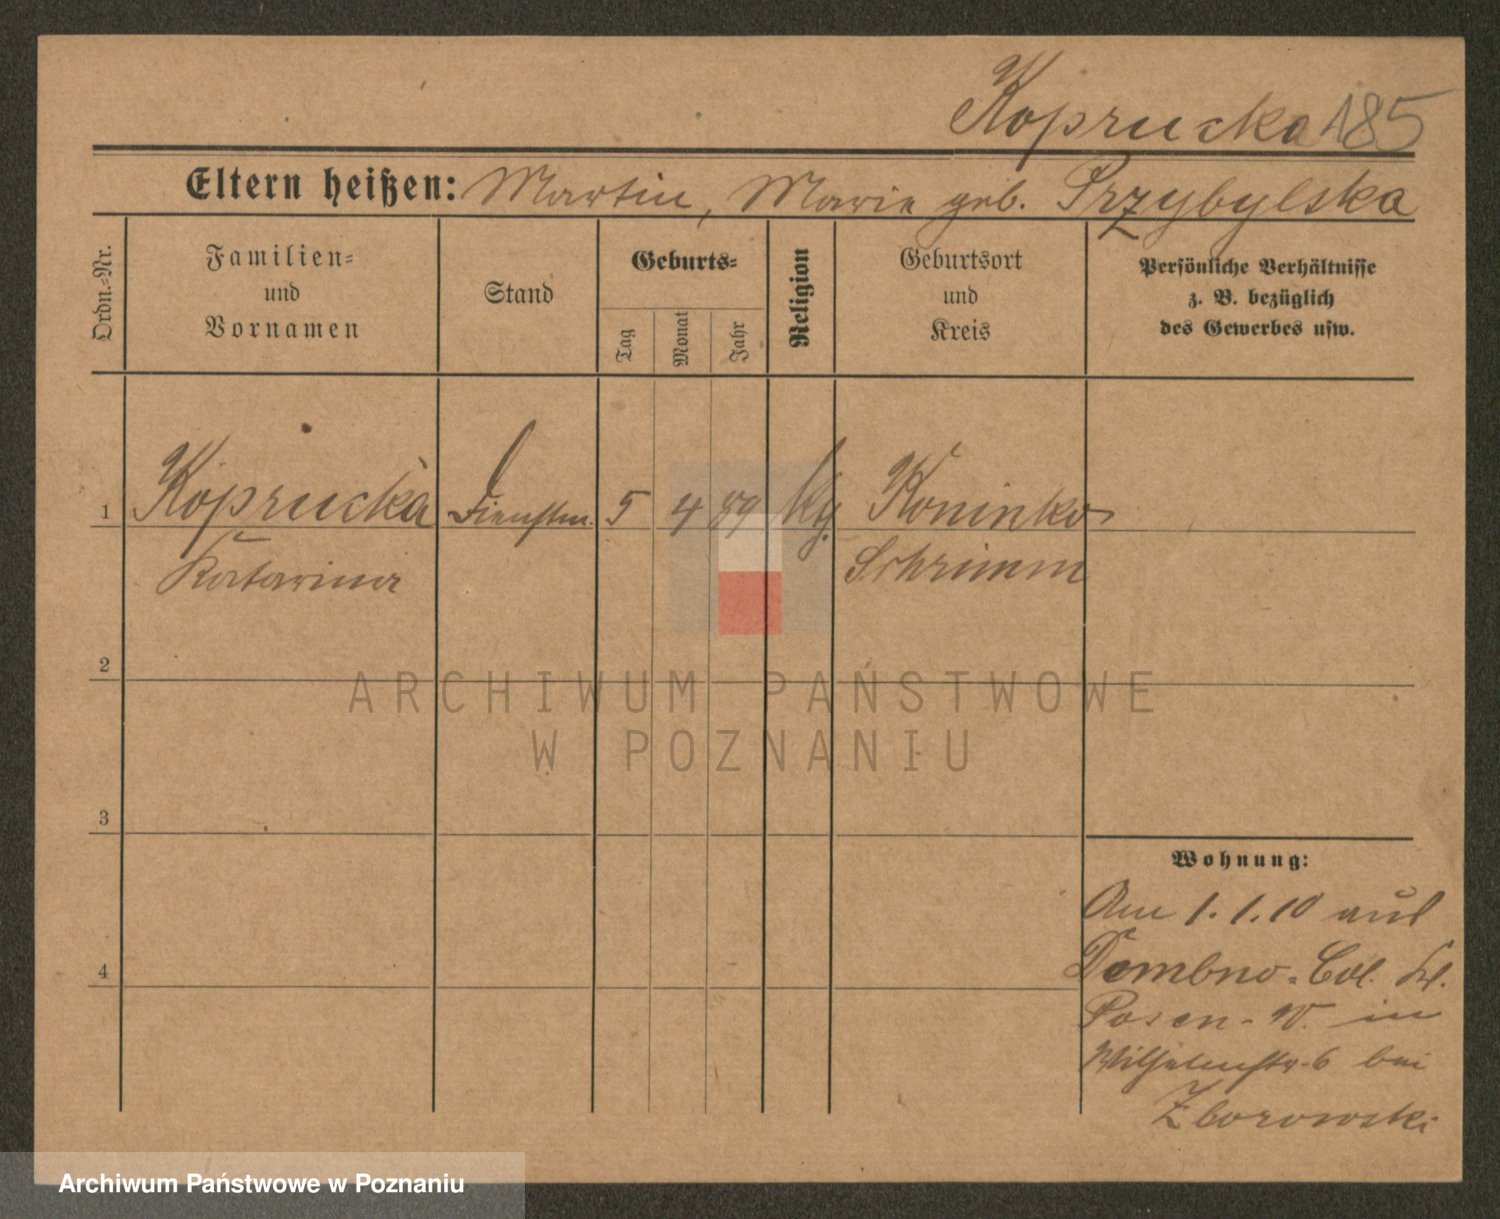 Koprucka 185
Eltern heißen: Martin, Marie geb. Przybylska
Ordn.-Nr.
Familien-
und
Vornamen
Stand
Geburts-
Tag
Monat
Jahr
Religion
Geburtsort
und
Kreis
Persönliche Verhältnisse
z. B. bezüglich
des Gewerbes usw.
1 Koprucka Dienstm. 5 4 89 kg. Koninko
Katarina Schrimm
2
3
Wohnung:
Am 1.1.10 aus
Dombno-Col. Kr.
4
Posen-W. in
Wilhelmstr. 6 bei
Zborowski
ARCHIWUM PAŃSTWOWE
W POZNANIU
Archiwum Państwowe w Poznaniu